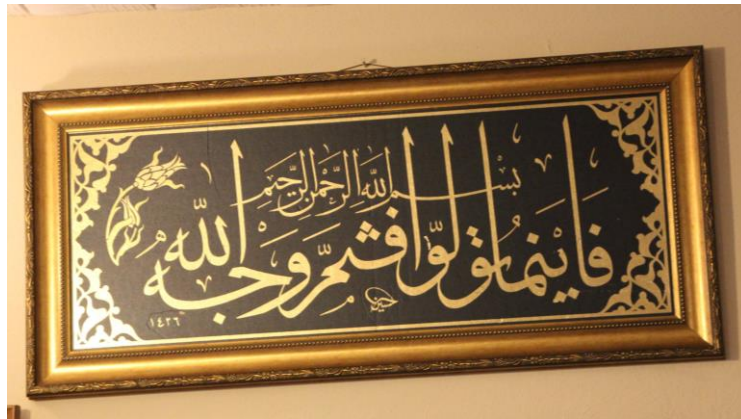 بسم الله الرحمن الرحيم
فَاَيْنَمَا تُوَلُّوا فَثَمَّ وَجْهُ اللّٰه
١٤٢٦